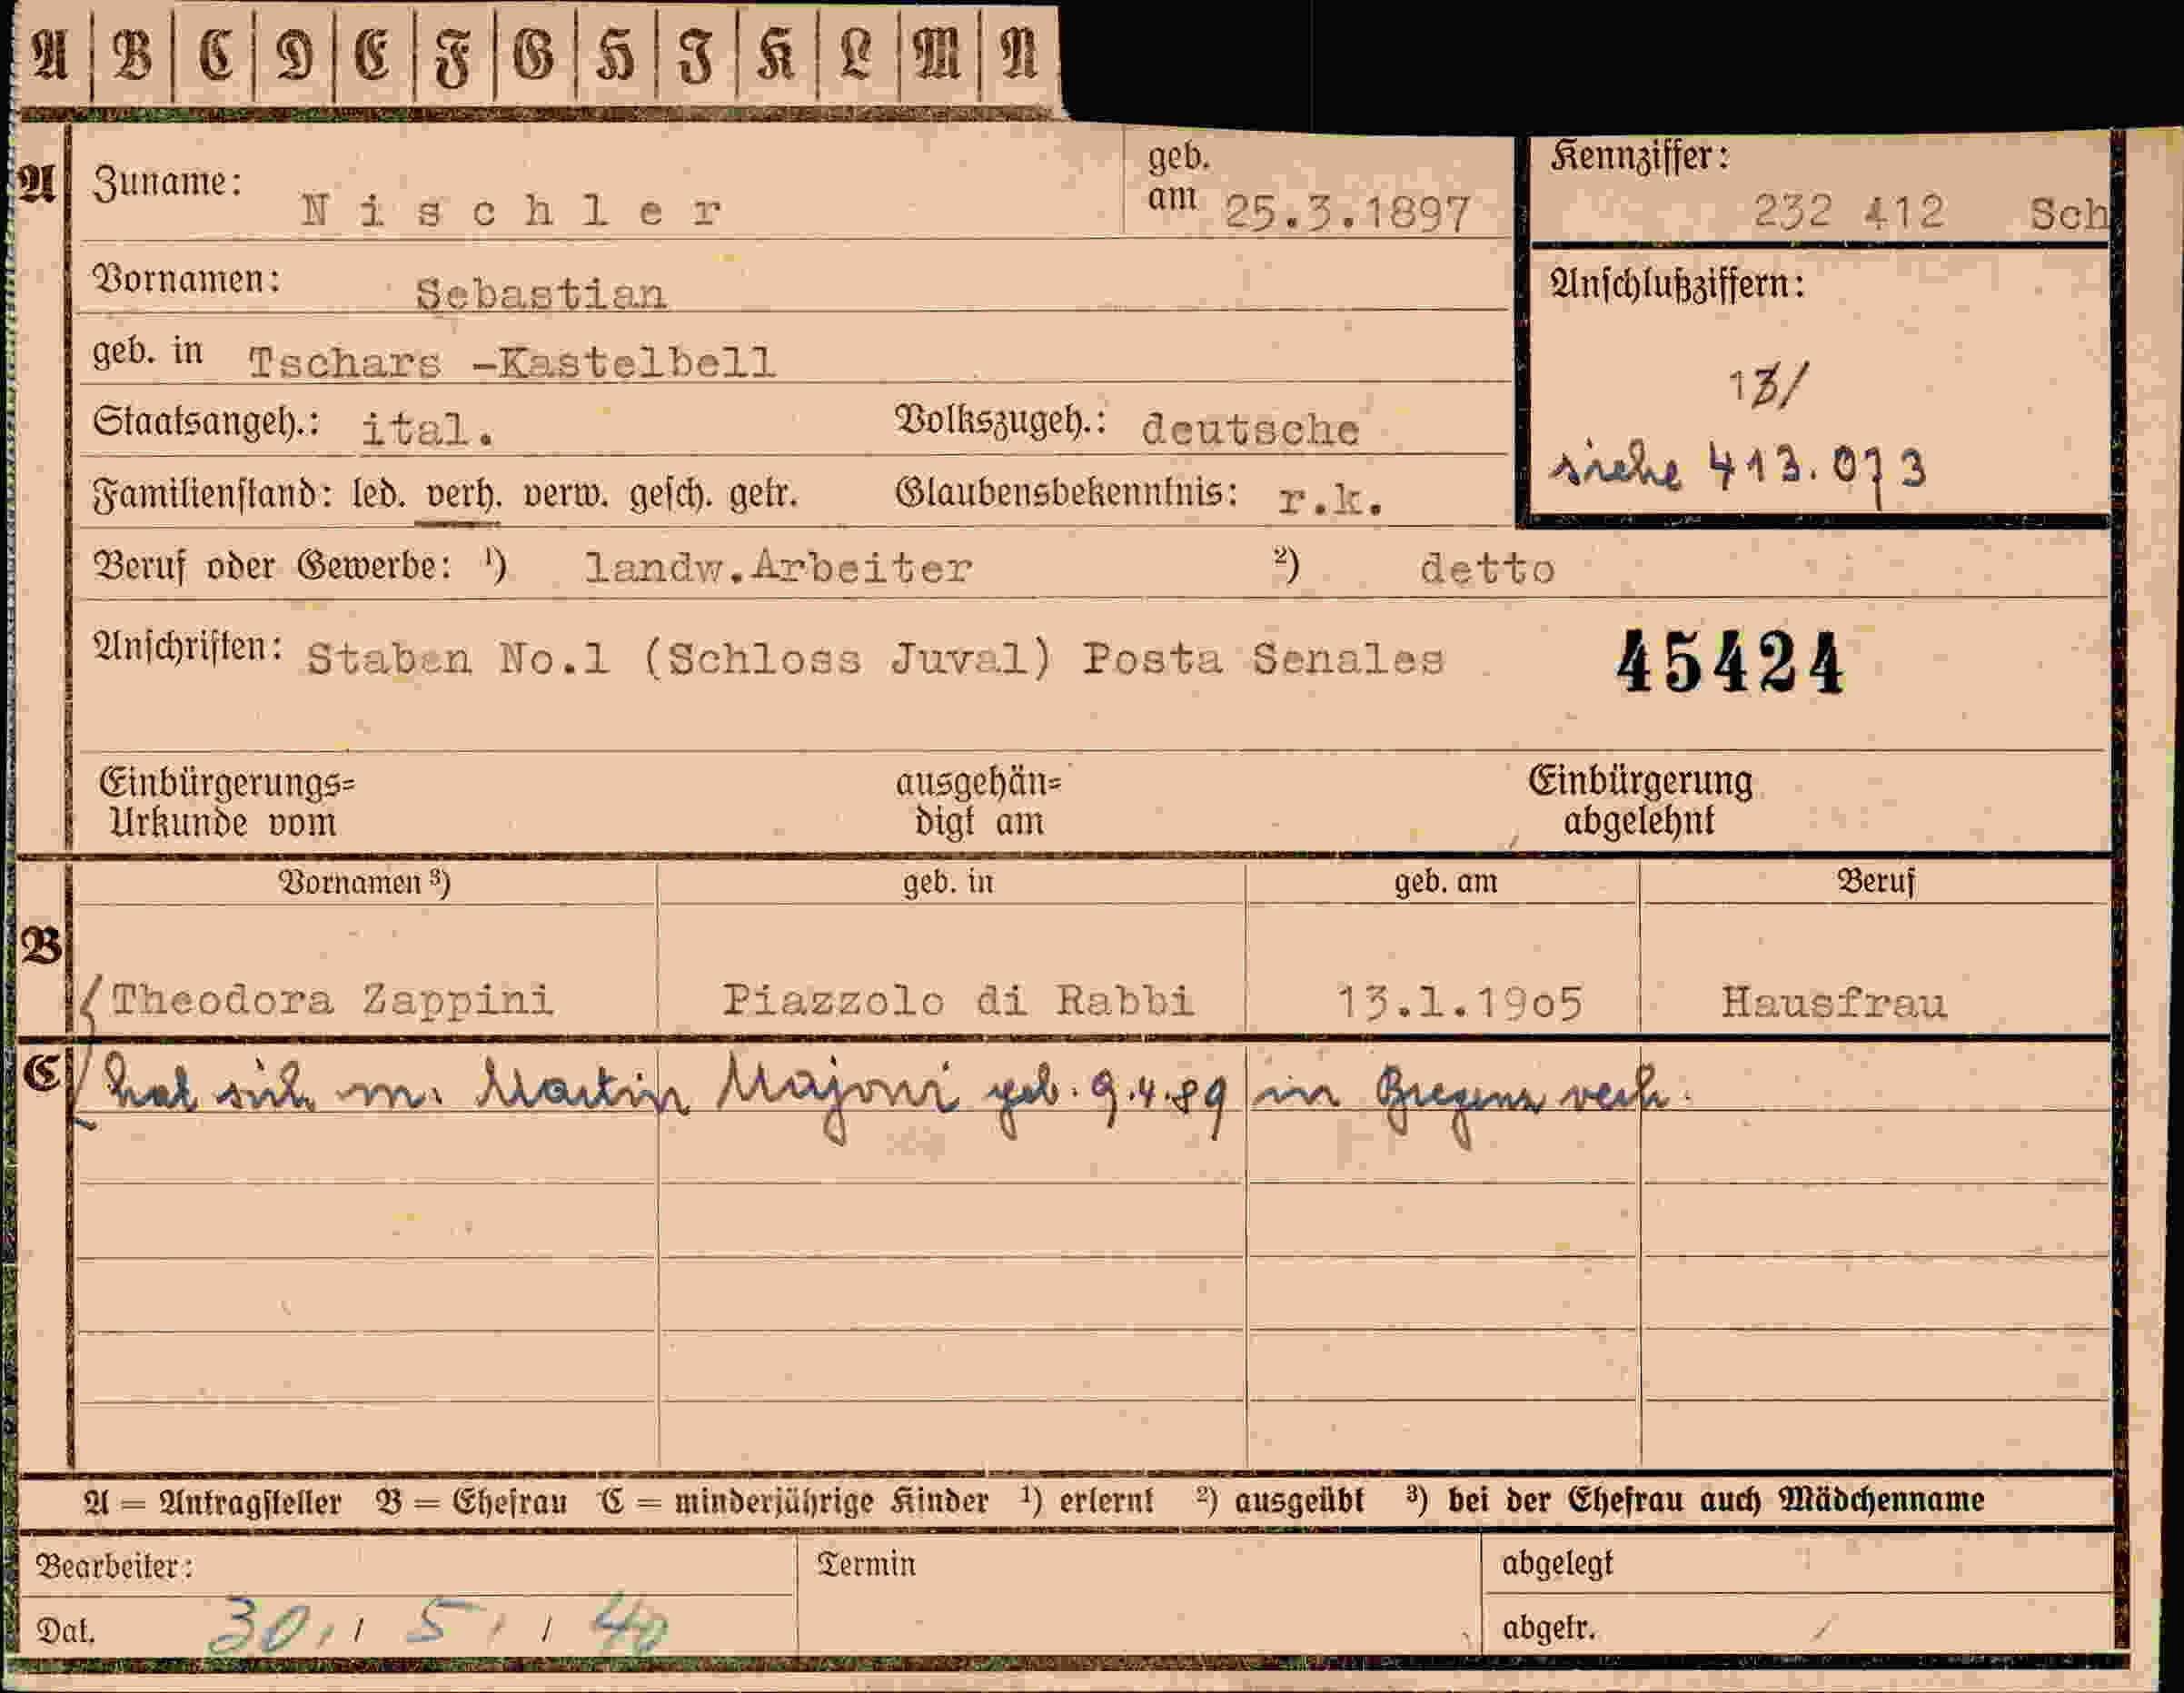 A B C D E F G H I K L M N
A Zuname: Nischler geb. am 25.3.1897 Kennziffer: 232 412 Sch
Vornamen: Sebastian Anschlußziffern:
geb. in Tschars -Kastelbell 13/
Staatsangeh.: ital. Volkszugeh.: deutsche siehe 413.073
Familienstand: led. verh. verw. gesch. getr. Glaubensbekenntnis: r.k.
Beruf oder Gewerbe: 1) landw.Arbeiter 2) detto
Anschriften: Staben No.1 (Schloss Juval) Posta Senales 45424
Einbürgerungs= ausgehän= Einbürgerung
Urkunde vom digt am abgelehnt
Vornamen 3) geb. in geb. am Beruf
B
Theodora Zappini Piazzolo di Rabbi 13.1.1905 Hausfrau
C hat sich m. Martin Majoni geb. 9.4.89 in Bregenz verh.
A = Antragsteller B = Ehefrau C = minderjährige Kinder 1) erlernt 2) ausgeübt 3) bei der Ehefrau auch Mädchenname
Bearbeiter: Termin abgelegt
Dat. 30. / 5. / 40 abgetr. /